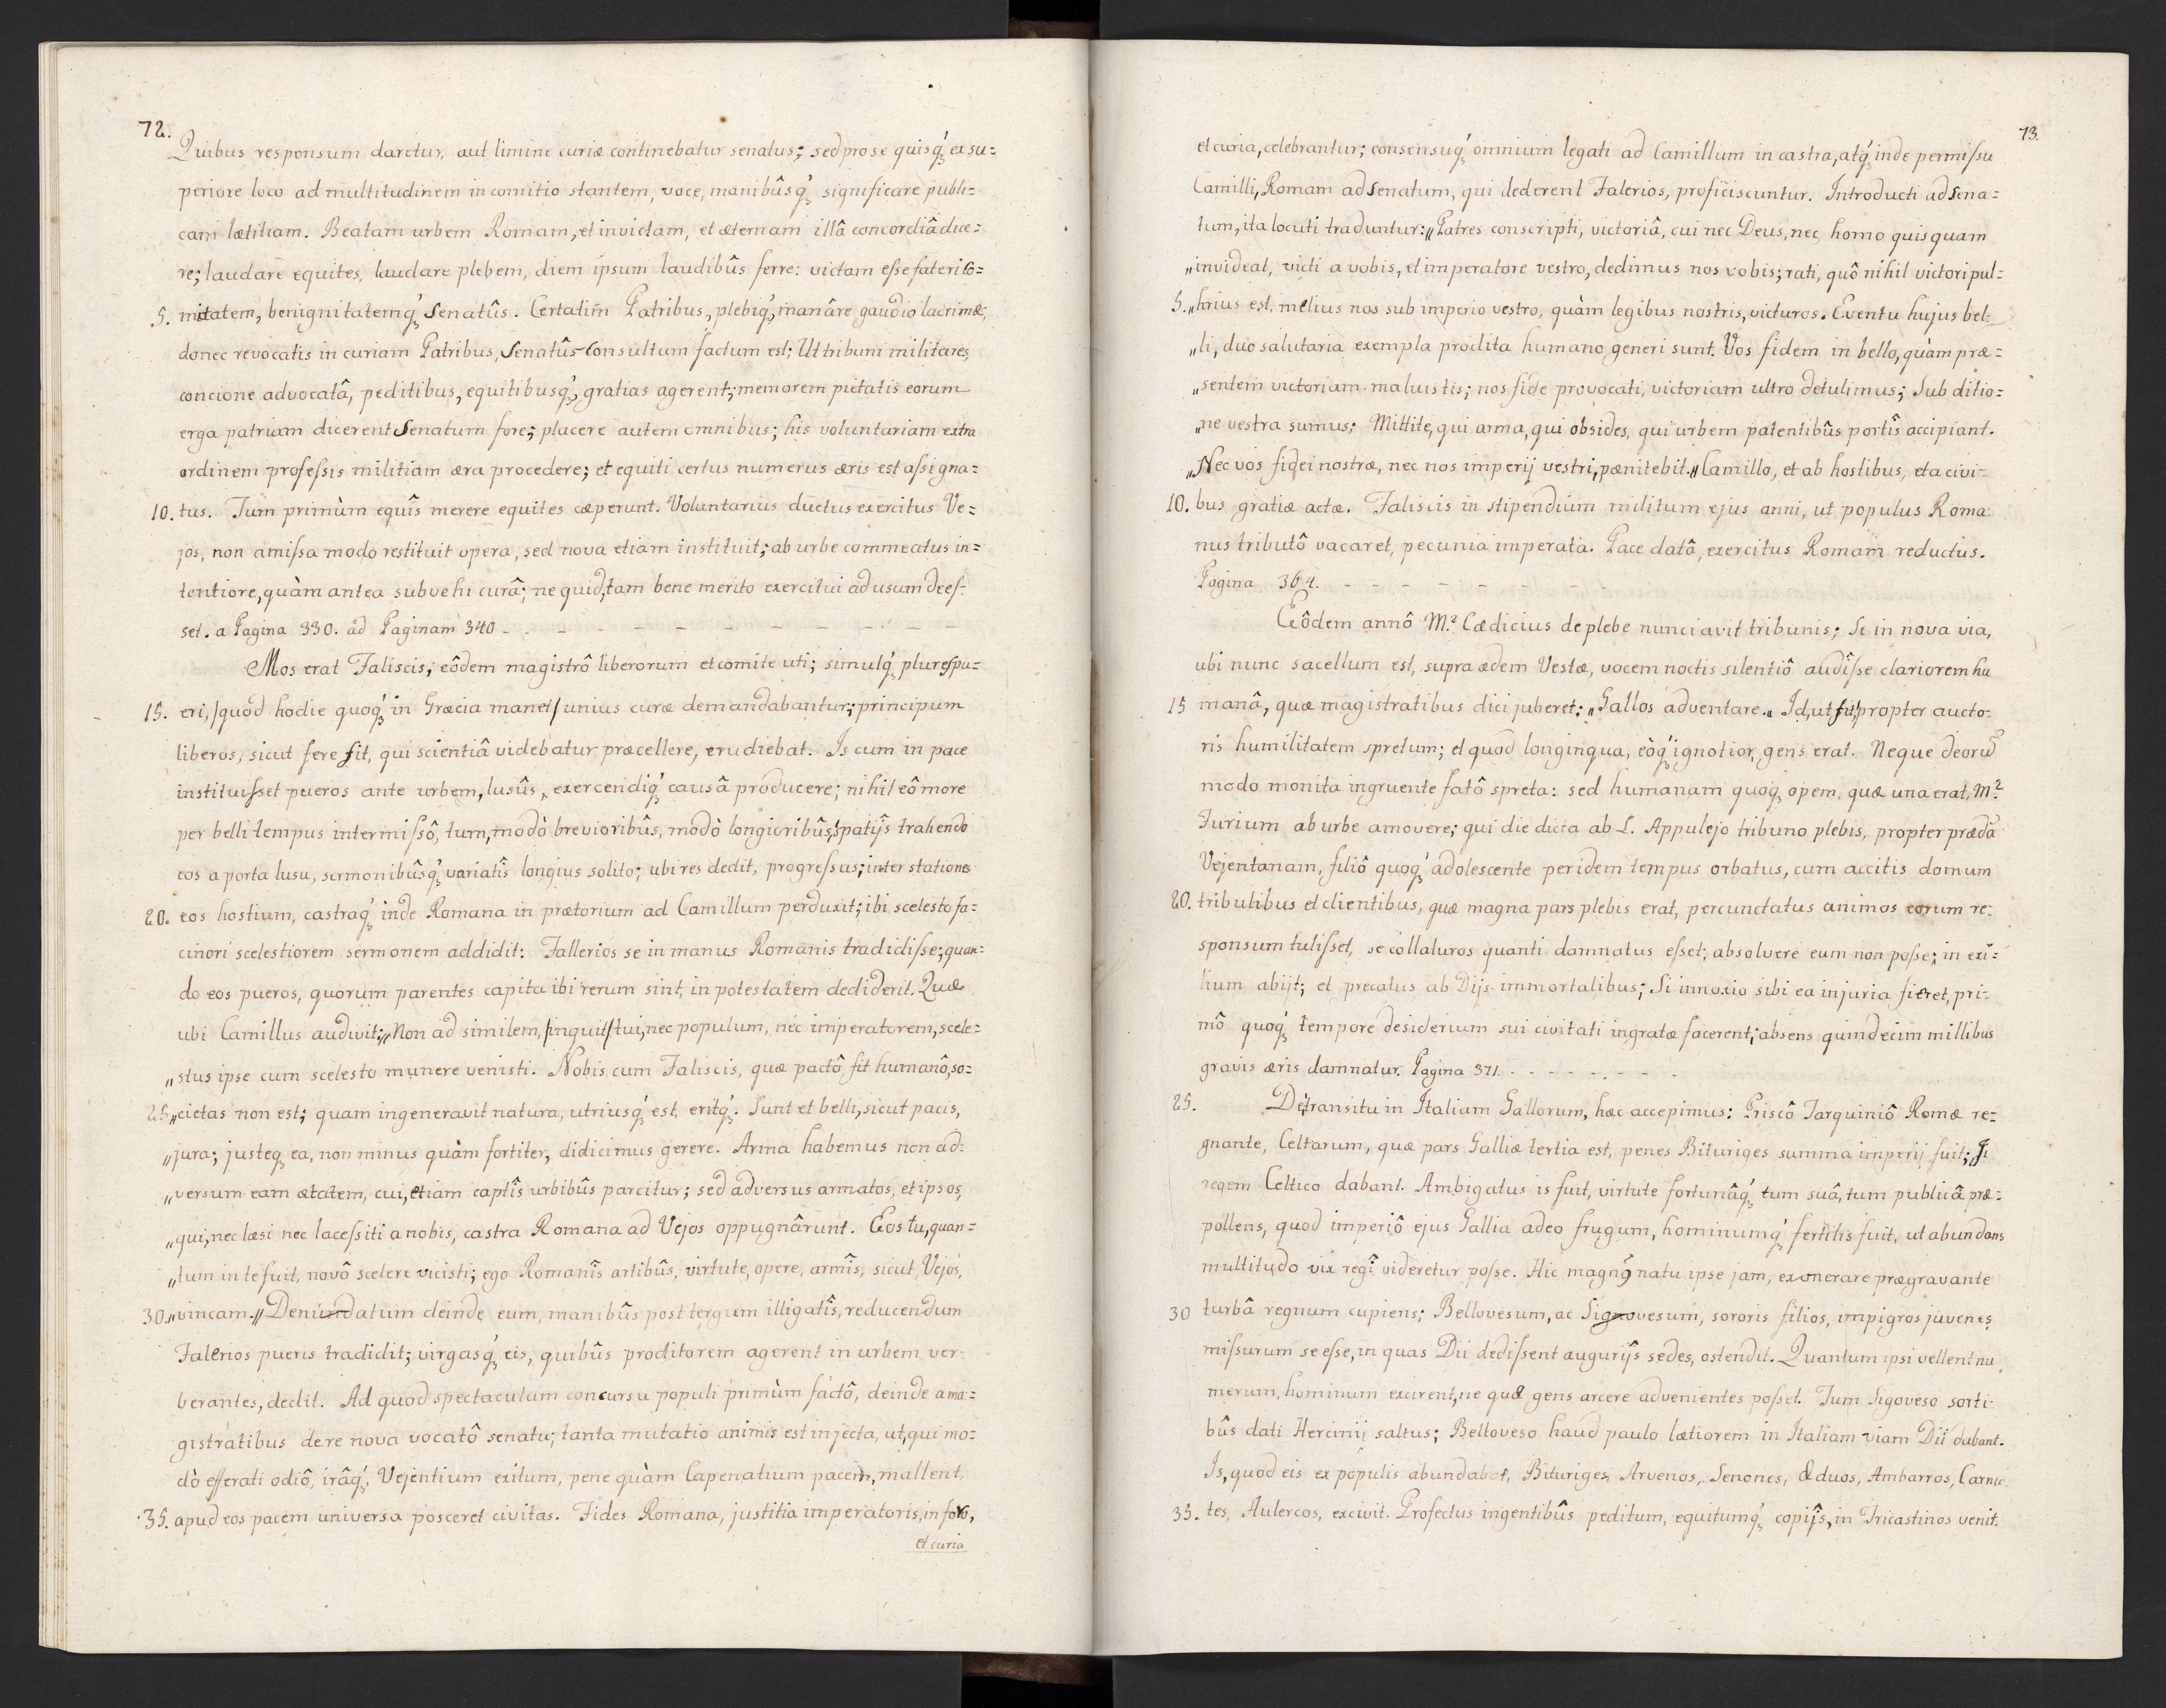 72.
Quibus responsum daretur, aut limine curiæ continebatur senatus; sed pro se quisq́ʒ ex su=
periore loco ad multitudinem in comitio stantem, voce, manibûsq́ʒ significare publi=
cam lætitiam. Beatam urbem Romam, et invictam, et æternam illâ concordiâ dice=
re; laudare equites, laudare plebem, diem ipsum laudibûs ferre: victam eſse fateri co=
5. mitatem, benignitatemq́ʒ Senatûs. Certatim Patribus, plebiq́ʒ, manâre gaudio lacrimæ,
donec revocatis in curiam Patribus, Senatûs-Consultum factum est; Ut tribuni militares,
concione advocatâ, peditibus, equitibusq́ʒ, gratias agerent; memorem pietatis eorum
erga patriam dicerent Senatum fore; placere autem omnibus; his voluntariam extra
ordinem profeſsis militiam æra procedere; et equiti certus numerus æris est aſsigna=
10. tus. Tum primùm equîs merere equites cæperunt. Voluntarius ductus exercitus Ve=
jos, non amiſsa modo restituit opera, sed nova etiam instituit; ab urbe commeatus in=
tentiore, quàm antea subvehi curâ; ne quid, tam bene merito exercitui ad usum deeſ=
set. a Pagina 330. ad Paginam 340 - - - - - - - - - -
Mos erat Faliscis, eôdem magistrô liberorum et comite uti; simulq́ʒ plures pu=
15. eri, /quod hodie quoq́ʒ in Græcia manet/ unius curæ demandabantur; principum
liberos, sicut fere fit, qui scientiâ videbatur præcellere, erudiebat. Is cum in pace
instituiſset pueros ante urbem, lusûs, exercendiq́ʒ causâ producere; nihil eô more
per belli tempus intermiſsô, tum, modò brevioribûs, modò longioribûs, spatijs trahendo
eos a porta lusu, sermonibûsq́ʒ variatîs longius solito; ubi res dedit, progreſsus; inter stationes
20. eos hostium, castraq́ʒ inde Romana in prætorium ad Camillum perduxit; ibi scelesto fa=
cinori scelestiorem sermonem addidit: Fallerios se in manus Romanis tradidiſse; quan=
do eos pueros, quorum parentes capita ibi rerum sint, in potestatem dediderit. Quæ
ubi Camillus audivit; „Non ad similem, /inquit/ tui, nec populum, nec imperatorem, scele=
„stus ipse cum scelesto munere venisti. Nobis cum Faliscis, quæ pactô fit humanô, so=
25. „cietas non est; quam ingeneravit natura, utriusq́ʒ est, eritq́ʒ. Sunt et belli, sicut pacis,
„jura; justeqʒ ea, non minus quàm fortiter, didicimus gerere. Arma habemus non ad=
„versum eam ætatem, cui, etiam captîs urbibûs parcitur; sed adversus armatos, et ipsos,
„qui, nec læsi nec laceſsiti a nobis, castra Romana ad Vejos oppugnârunt. Eos tu, quan=
„tum in te fuit, novô scelere vicisti; ego Romanîs artibûs, virtute, opere, armîs, sicut Vejos,
30. „vincam.„ Denudatum deinde eum, manibûs post tergum illigatîs, reducendum
Falerios pueris tradidit; virgasq́ʒ eis, quibûs proditorem agerent in urbem ver=
berantes, dedit. Ad quod spectaculum concursu populi primùm factô, deinde a ma=
gistratibus de re nova vocatô senatu; tanta mutatio animis est injecta, ut, qui mo=
dò efferati odiô, irâq́ʒ, Vejentium exitum, pene quàm Capenatium pacem, mallent,
35. apud eos pacem universa posceret civitas. Fides Romana, justitia imperatoris, in foro,
et curia
73.
et curia, celebrantur; consensuq́ʒ omnium legati ad Camillum in castra, atq́ʒ inde permiſsu
Camilli, Romam ad Senatum, qui dederent Falerios, proficiscuntur. Introducti ad Sena=
tum, ita locuti traduntur: „Patres conscripti, victoriâ, cui nec Deus, nec homo quisquam
„invideat, victi a vobis, et imperatore vestro, dedimus nos vobis; rati, quô nihil victori pul=
5. „hrius est, melius nos sub imperio vestro, quàm legibus nostris, victuros. Eventu hujus bel=
„li, duo salutaria exempla prodita humano generi sunt. Vos fidem in bello, quàm præ=
„sentem victoriam maluistis; nos fide provocati, victoriam ultro detulimus; Sub ditio=
„ne vestra sumus; Mittite, qui arma, qui obsides, qui urbem patentibûs portîs accipiant.
„Nec vos fidei nostræ, nec nos imperij vestri, pænitebit.„ Camillo, et ab hostibus, et a civi=
10. bus gratiæ actæ. Faliscis in stipendium militum ejus anni, ut populus Roma=
nus tributô vacaret, pecunia imperata. Pace datâ, exercitus Romam reductus.
Pagina 364. - - - - - - - - -
Eôdem annô M.ꝰ Cædicius de plebe nunciavit tribunis; Se in nova via,
ubi nunc sacellum est, supra ædem Vestæ, vocem noctis silentiô audîſse clariorem hu
15 manâ, quæ magistratibus dici juberet; „Gallos adventare.„ Id, ut fit, propter aucto=
ris humilitatem spretum; et quod longinqua, eòq́ʒ ignotior, gens erat. Neque deorũ
modo monita ingruente fatô spreta: sed humanam quoqʒ opem, quæ una erat, M.ꝰ
Furium ab urbe amovere; qui die dicta ab L. Appulejo tribuno plebis, propter prædã
Vejentanam, filiô quoq́ʒ adolescente per idem tempus orbatus, cum accitis domum
20. tribulibus et clientibus, quæ magna pars plebis erat, percunctatus animos eorum re=
sponsum tuliſset, se collaturos quanti damnatus eſset; absolvere eum non poſse; in exi=
lium abijt; et precatus ab Dijs immortalibus; Si innoxio sibi ea injuria fieret, pri=
mô quoq́ʒ tempore desiderium sui civitati ingratæ facerent; absens quindecim millibus
gravis æris damnatur. Pagina 371. - - - - - - - -
25. De transitu in Italiam Gallorum, hæc accepimus: Priscô Tarquiniô Romæ re=
gnante, Celtarum, quæ pars Galliæ tertia est, penes Bituriges summa imperij fuit; Ji
regem Celtico dabant. Ambigatus is fuit, virtute fortunâq́ʒ tum suâ, tum publicâ præ=
pollens, quod imperiô ejus Gallia adeo frugum, hominumq́ʒ fertilis fuit, ut abundans
multitudo vix regî videretur poſse. Hic magnꝰ natu ipse jam, exonerare prægravante
30 turbâ regnum cupiens; Bellovesum, ac Sigovesum, sororis filios, impigros juvenes
miſsurum se eſse, in quas Dii dediſsent augurijs sedes, ostendit. Quantum ipsi vellent nu
merum, hominum excirent, ne quæ gens arcere advenientes poſset. Tum Sigoveso sorti=
bûs dati Hercinij saltus; Belloveso haud paulo lætiorem in Italiam viam Dii dabant.
Is, quod eis ex populis abundabat, Bituriges, Arvenos, Senones, Æduos, Ambarros, Carnu=
35. tes, Aulercos, excivit. Profectus ingentibûs peditum, equitumq́ʒ copijs, in Tricastinos venit.